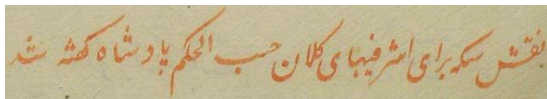 نقش سکه برای اشرفیهای کلان حسب الحکم پادشاه کهنه شد